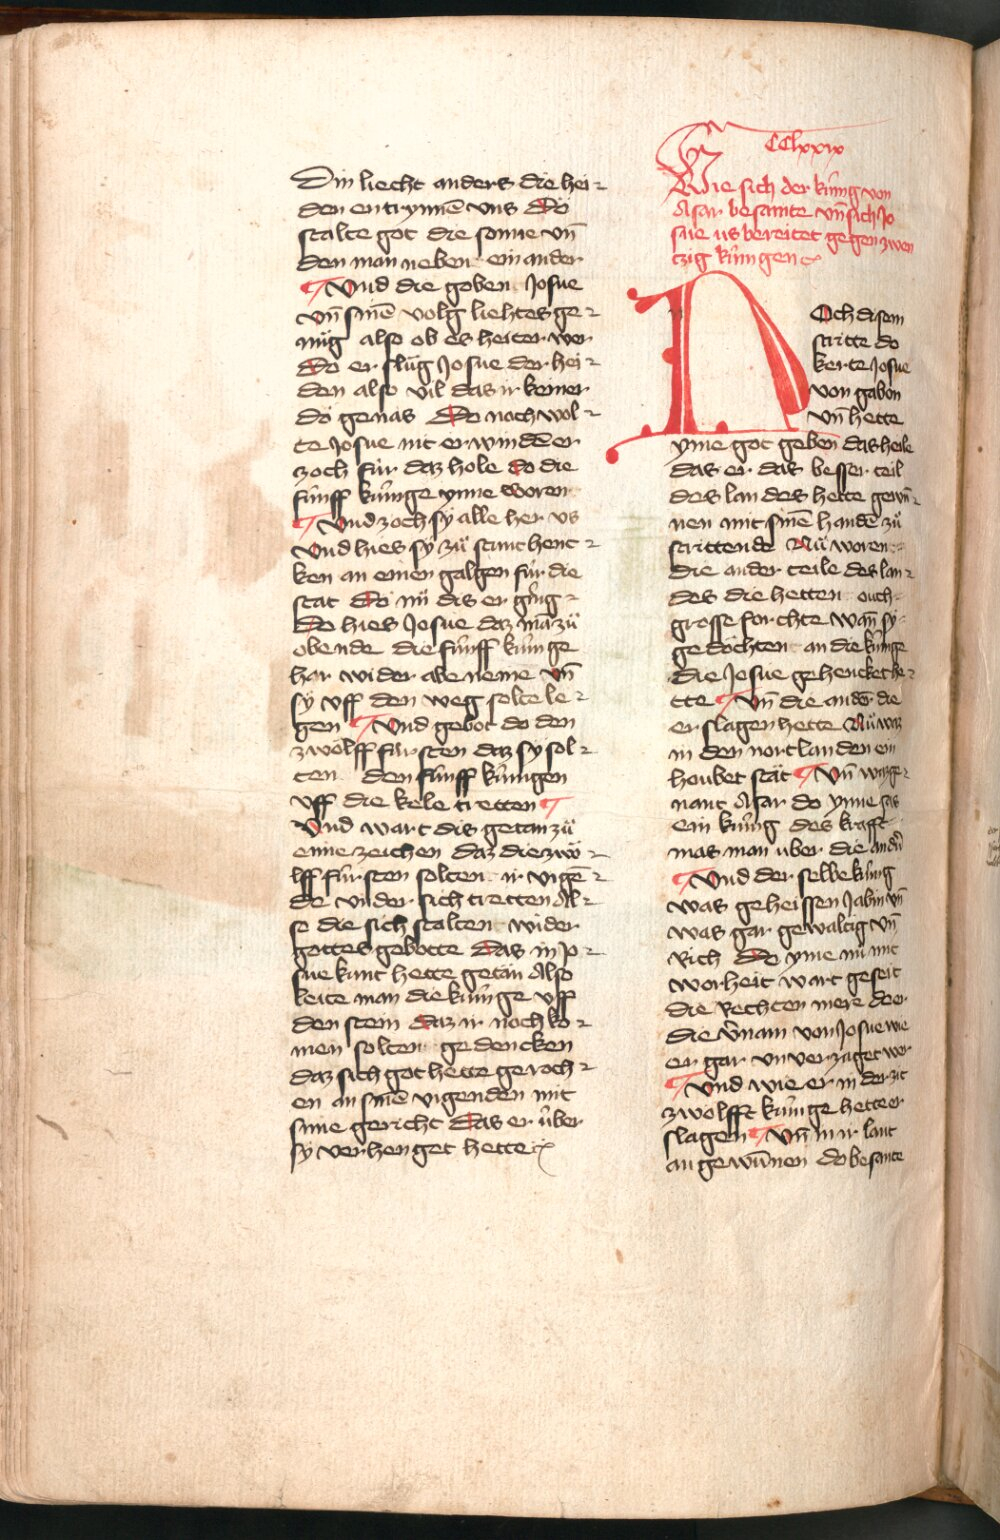 Din liecht anders die hei-
den entrynnē vns Do
stalte got die sonne vn̄
den man neben ein ander
¶ Vnd die goben Josue
vn̄ sinē volg liehtes ge-
nuͦg also ob es heiter wer
Do er sluͦg Josue der hei-
den also vil das ir keiner
do genas Do noch wol-
te Josue nit erwinden er
zoch fuͤr daz hole do die
fuͤnff kuͤnige ynne woren
¶ Vnd zoch sÿ alle her vs
Vnd hies sÿ zuͦ stunt henc-
ken an einen galgen fuͤr die
stat Do nuͦ dis erging
Do hies Josue daz mā zuͦ
obende die fuͤnff kuͤnige
har wider abe neme vn̄
sÿ vff den weg solte le-
gen ¶ Vnd gebot do den
zwoͤlff fuͤrsten daz sÿ sol-
ten den fuͤnff kuͤnigen
vff die kele tretten ¶
Vnd wart dis getan zuͦ
eime zeichen daz die zwoͤ-
lff fuͤrsten solten ir vigē-
de vnder sich tretten Al-
se die sich stalten wider
gottes gebotte Das in Jo-
sue kunt hette getan Also
leite man die kuͤnige vff
den stein Daz ir nochko-
men solten gedencken
daz sich got hette geroch-
en an sinē vigenden mit
sime gericht Das er uͤber
sÿ verhenget hette
CClxxix
Wie sich der kuͤnig von
Asar besamte vn̄ sich Jo
sue us bereitet gegen zwen
tzig kuͤnigen
NOch disem
stritte do
kerte Josue
von gabon
vn̄ hette
yme got geben das heile
das er das besser teil
des landes hette gewū-
nen mit sinē handē zuͦ
strittende Nuͦ woren
die ander teile des lan-
des die hetten ouch
grosse forchte wan̄ sy
gedochten an die kuͤnige
die Josue gehencket he-
tte ¶ Vn̄ die ander die
erslagen hette Nuͦ waz
in den nortlanden ein
houbet stat ¶ Vn̄
nant Asar do ynne sas
ein kuͤnig des krafft
mas man uber die andn̄
¶ Vnd der selbe kuͤnig
was geheissen Jabin vn̄
was gar gewaltig vn̄
Rich Do yme nuͦ mit
worheit wart geseit
die Rechten mere Do er
die v̄nam von Josue wie
er gar vnverzaget wer
¶ Vnd wie er in der zit
zwoͤlfft kuͤnige hette er
slagen ¶ Vn̄ in ir lant
angewūnen do besante